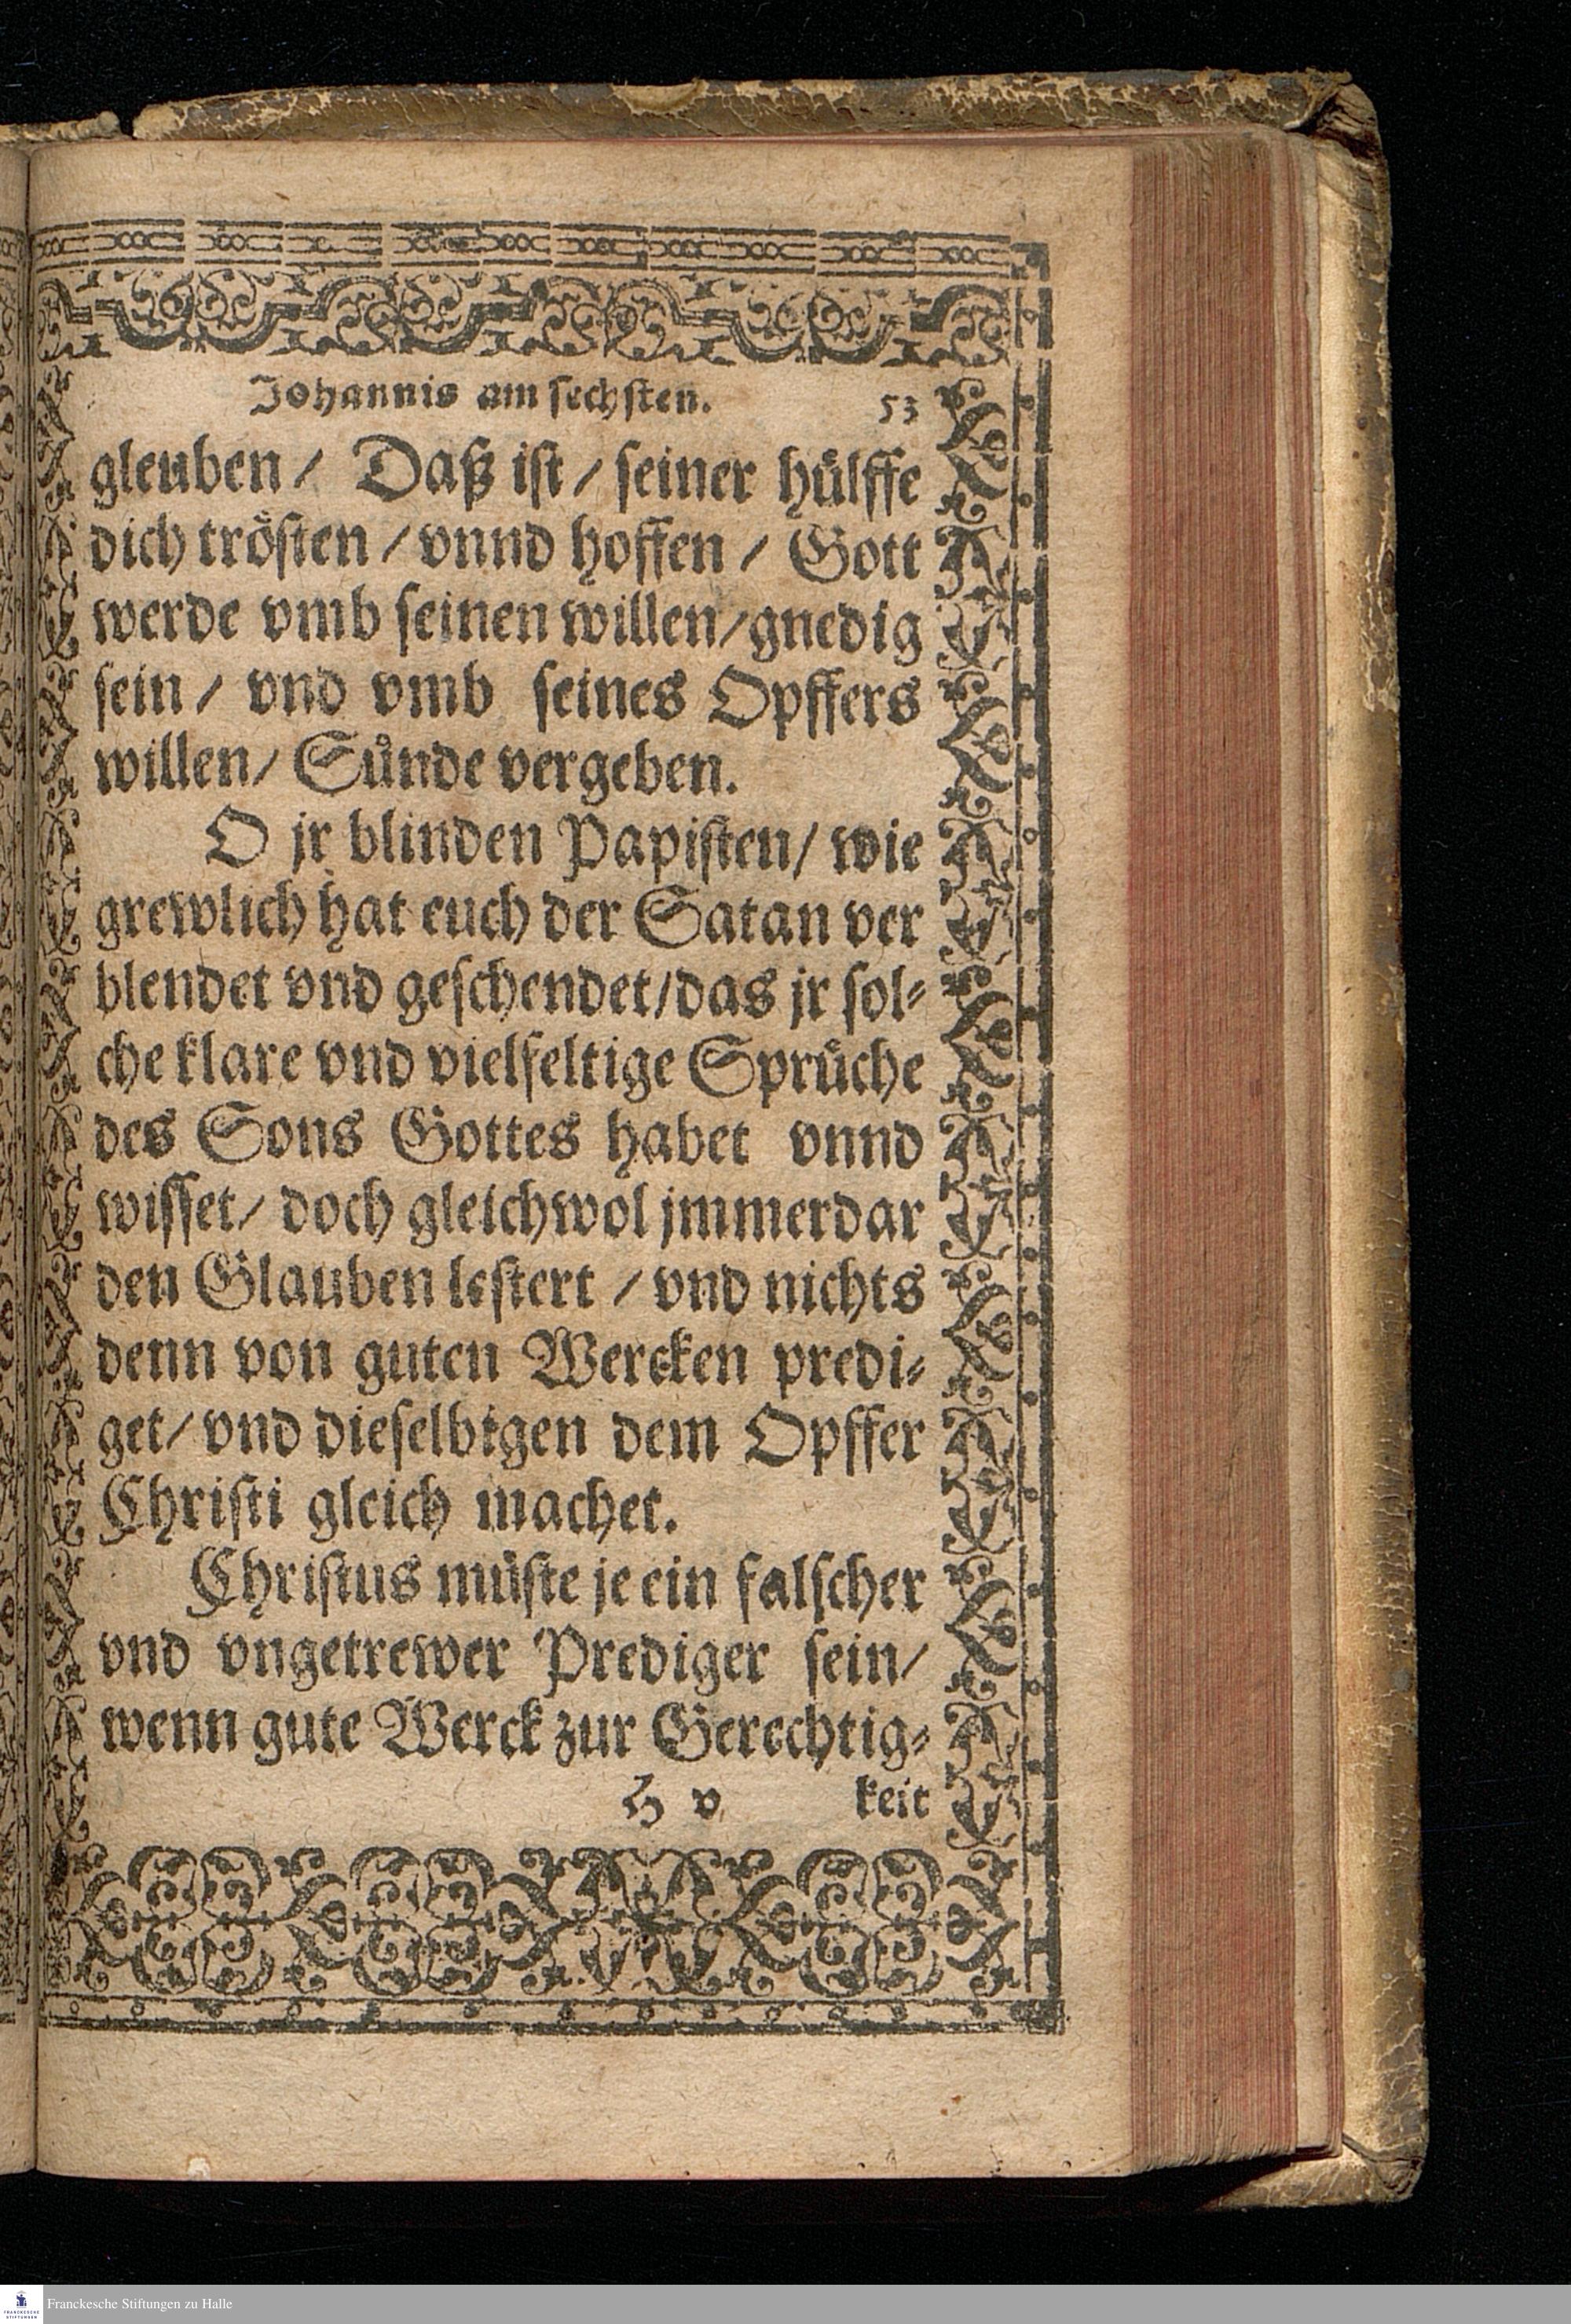 Johannis am sechsten. 53
gleuben/ Daß ist/ seiner hülffe
dich trösten/ vnnd hoffen/ Gott
werde vmb seinen willen/gnedig
sein/ vnd vmb seines Opffers
willen/ Sünde vergeben.
O jr blinden Papisten/ wie
grewlich hat euch der Satan ver
blendet vnd geschendet/das jr sol-
che klare vnd vielfeltige Sprüche
des Sons Gottes habet vnnd
wisset/ doch gleichwol jmmerdar
den Glauben lestert/ vnd nichts
denn von guten Wercken predi-
get/ vnd dieselbigen dem Opffer
Christi gleich machet.
Christus müste je ein falscher
vnd vngetrewer Prediger sein/
wenn gute Werck zur Gerechtig-
H v keit
FRANCKESCHE
STIFTUNGEN
Franckesche Stiftungen zu Halle